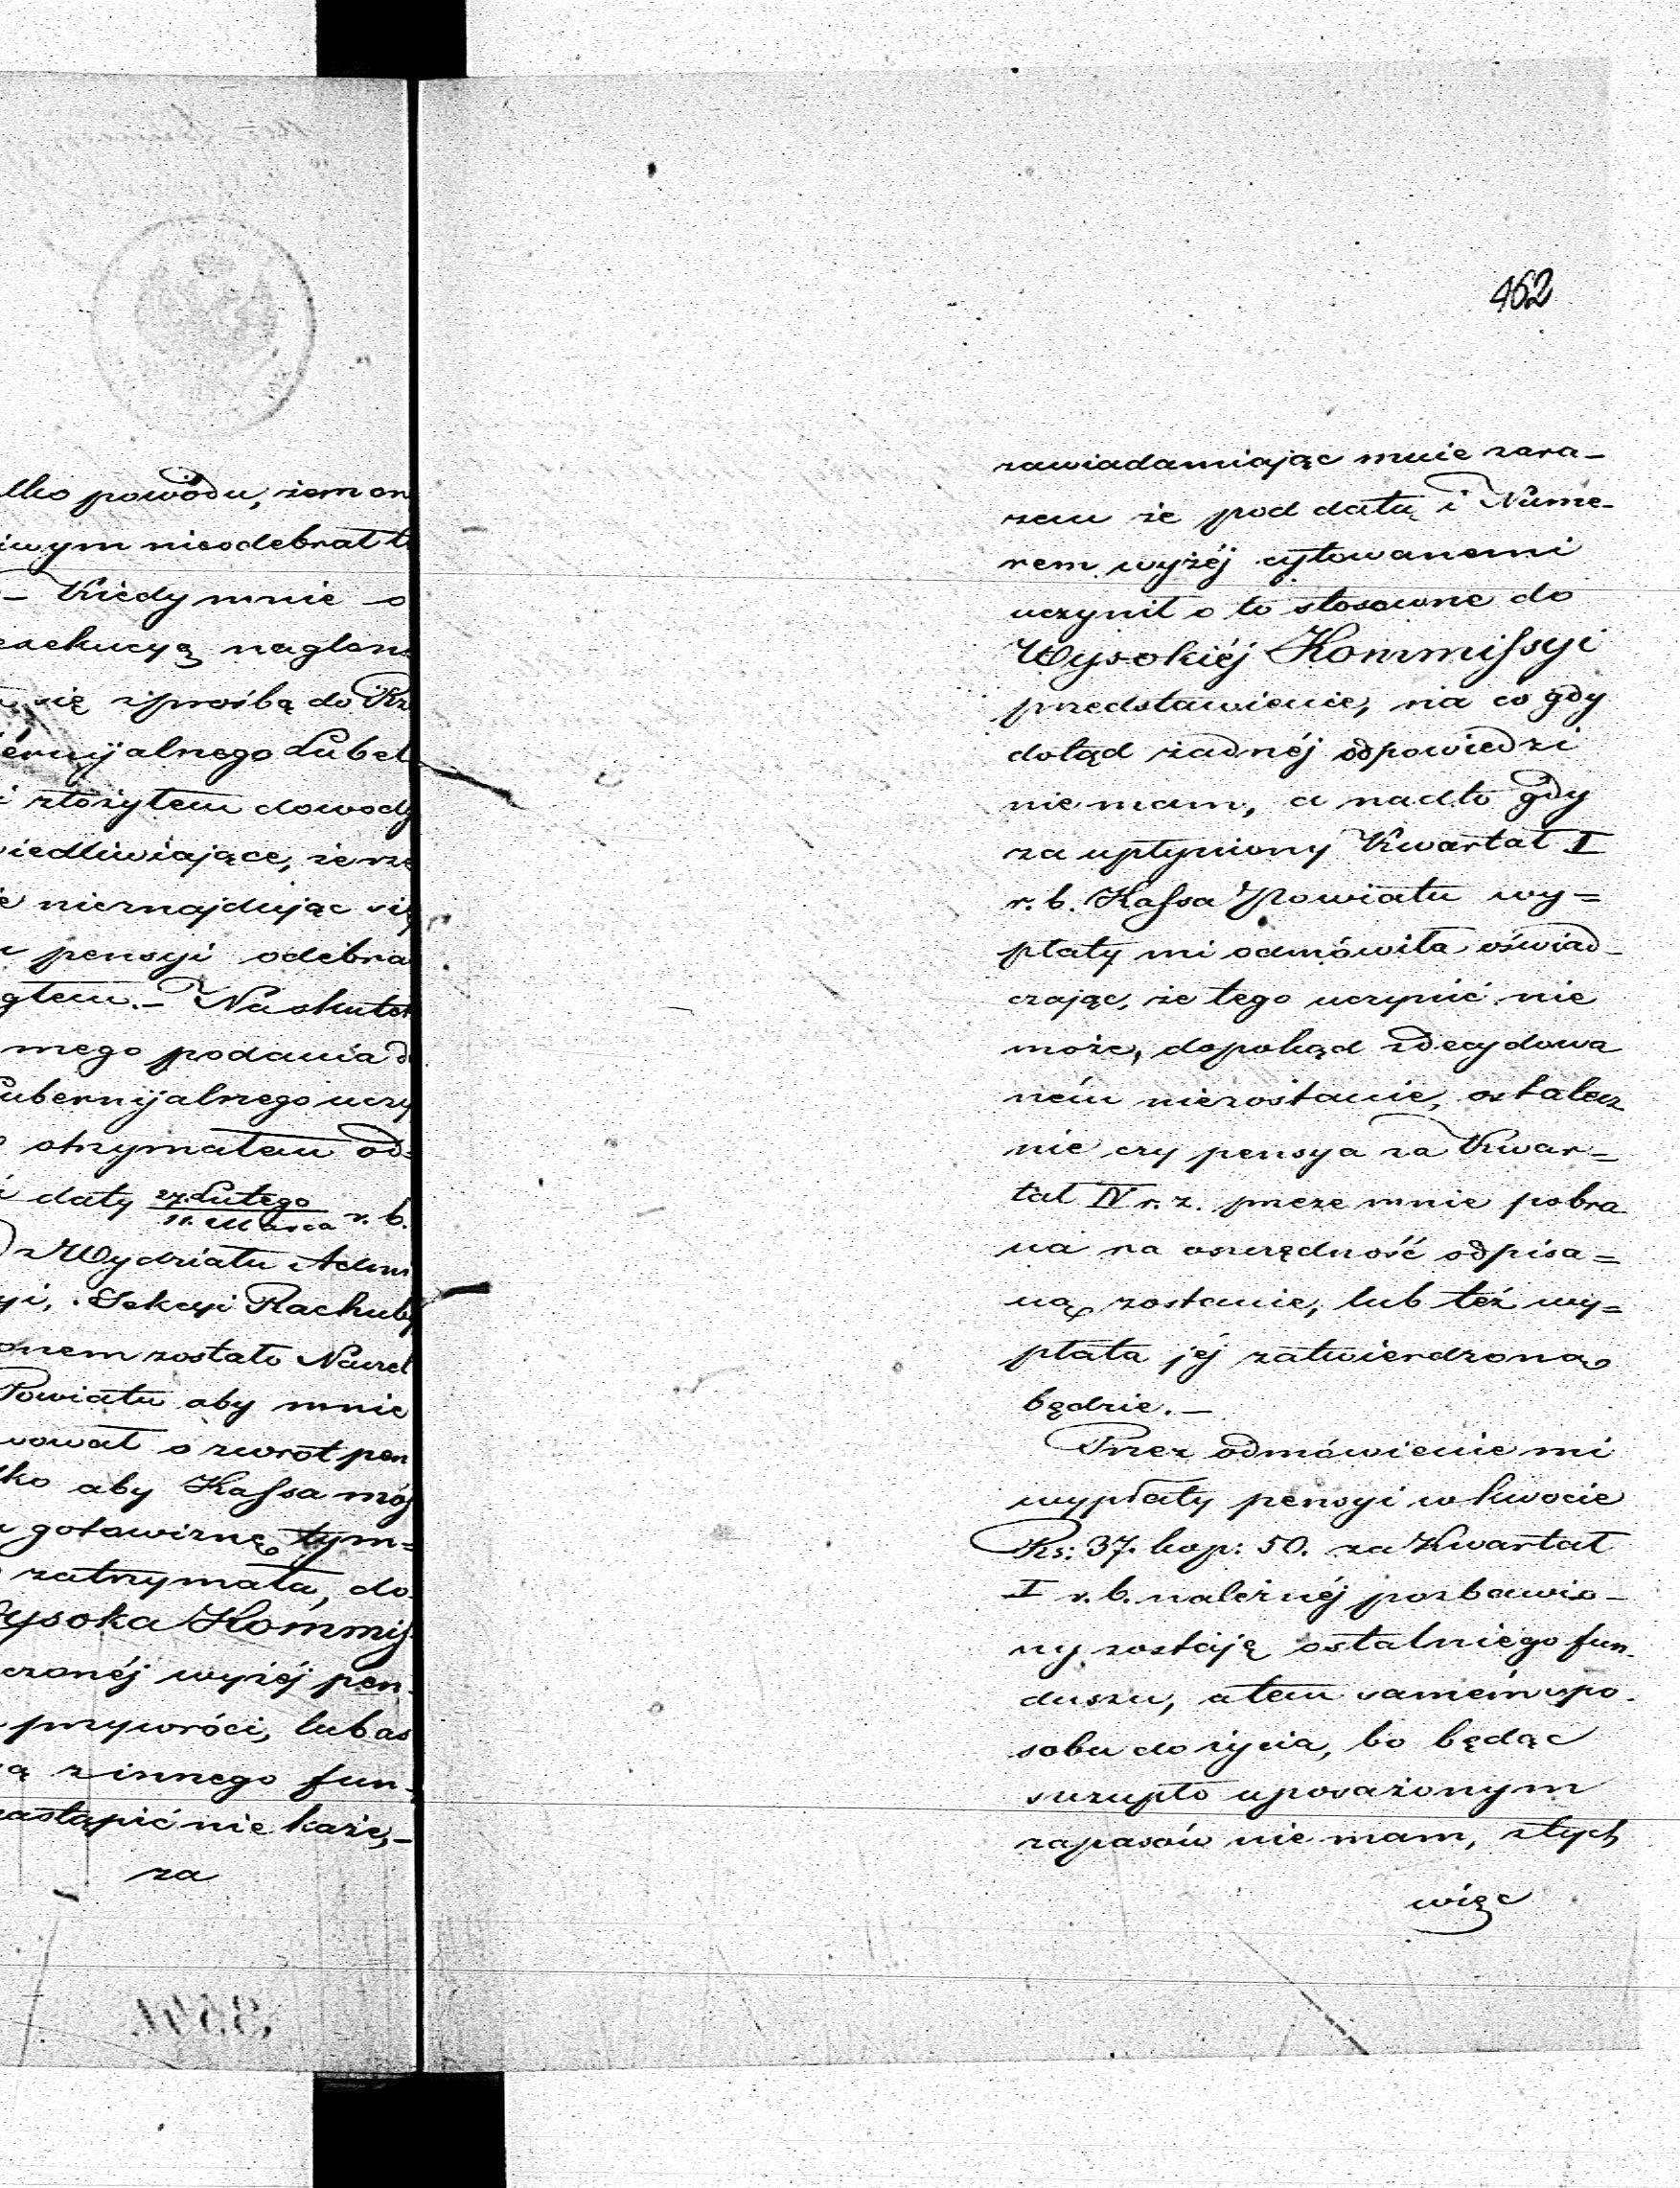 lko powodu, żem on
iwym nieodebrał t
– Kiedy mnie o
exekucyą naglon
się z prośbą do Rz
ernijalnego Lubel
i złożyłem dowody
iedliwiające, że w
nieznajdując się
pensyi odebra
głem. – Na skutek
mego podania d
ubernijalnego uczy
otrzymałem od=
daty 27. Lutego / 11. Marca r. b.
z Wydziału Admi
yi, Sekcyi Rachuby
onem zostało Naczel
Powiatu aby mnie
wował o zwrot pen
ko aby Kassa mój
gotowiznę tym=
zatrzymała, do
ysoka Kommis
czonéj wyżéj pen=
przywróci, lub as
ą z innego fun=
zastąpić nie każe, –
za
3541.
462
zawiadamiając mnie zara–
zem że pod datą i Nume–
rem wyżéj cytowanemi
uczynił o to stosowne do
Wysokiéj Kommissyi
przedstawienie, na co gdy
dotąd żadnéj odpowiedzi
nie mam, a nadto gdy
za upłyniony Kwartał I
r. b. Kassa Powiatu wy=
płaty mi odmówiła oświad–
czając, że tego uczynić nie
może, dopokąd zdecydowa
ném niezostanie, ostatecz
nie czy pensya za Kwar=
tał IV r. z. przeze mnie pobra
na na oszczędność odpisa=
ną zostanie, lub też wy=
płata jéj zatwierdzoną
będzie. –
Przez odmówienie mi
wypłaty pensyi w kwocie
Rs: 37. kop: 50. za Kwartał
I r. b. należnéj pozbawio–
ny zostaję ostatniego fun–
duszu, a tem samém spo–
sobu do życia, bo będąc
szczupło uposażonym
zapasów nie mam, z tych
więc